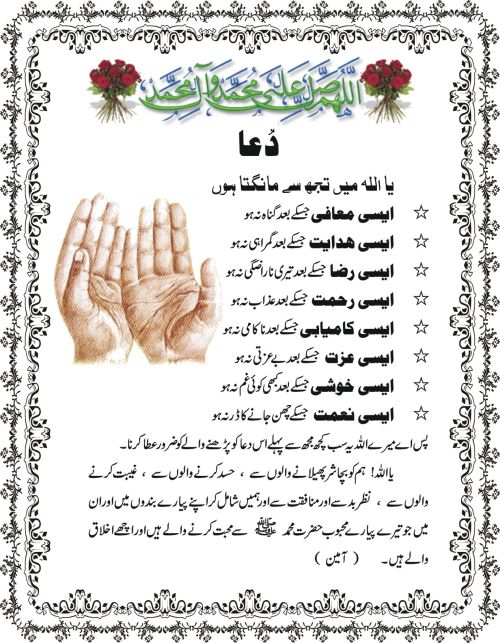 اللهم صل علی محمد وآل محمد
دُعا
یا اللہ میں تجھ سے مانگتا ہوں
☆ ایسی معافی جسکے بعد گناہ نہ ہو
☆ ایسی ھدایت جسکے بعد گمراہی نہ ہو
☆ ایسی رضا جسکے بعد تیری ناراضگی نہ ہو
☆ ایسی رحمت جسکے بعد عذاب نہ ہو
☆ ایسی کامیابی جسکے بعد ناکامی نہ ہو
☆ ایسی عزت جسکے بعد بے عزتی نہ ہو
☆ ایسی خوشی جسکے بعد کبھی کوئی غم نہ ہو
☆ ایسی نعمت جسکے چھن جانے کا ڈر نہ ہو
پس اے میرے اللہ یہ سب کچھ مجھ سے پہلے اس دعا کو پڑھنے والے کو ضرور عطا کرنا۔
یااللہ! ہم کو بچا شر پھیلانے والوں سے ، حسد کرنے والوں سے ، غیبت کرنے
والوں سے ، نظر بد سے اور منافقت سے اور ہمیں شامل کر اپنے پیارے بندوں میں اور ان
میں جو تیرے پیارے محبوب حضرت محمد ﷺ سے محبت کرنے والے ہیں اور اچھے اخلاق
والے ہیں۔ ( آمین )